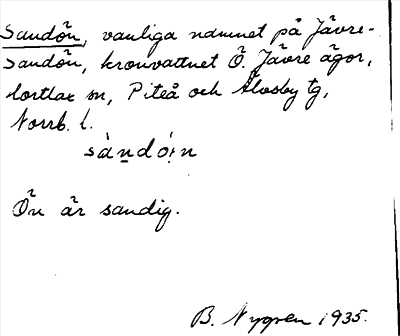 Sandön, vanliga namnet på Jävre-
sandön, kronvattnet Ö. Jävre ägor,
Hortlax sn, Piteå och Älvsby tg,
Norrb. l.
sàndó̤n
Ön är sandig.
B. Nygren 1935.